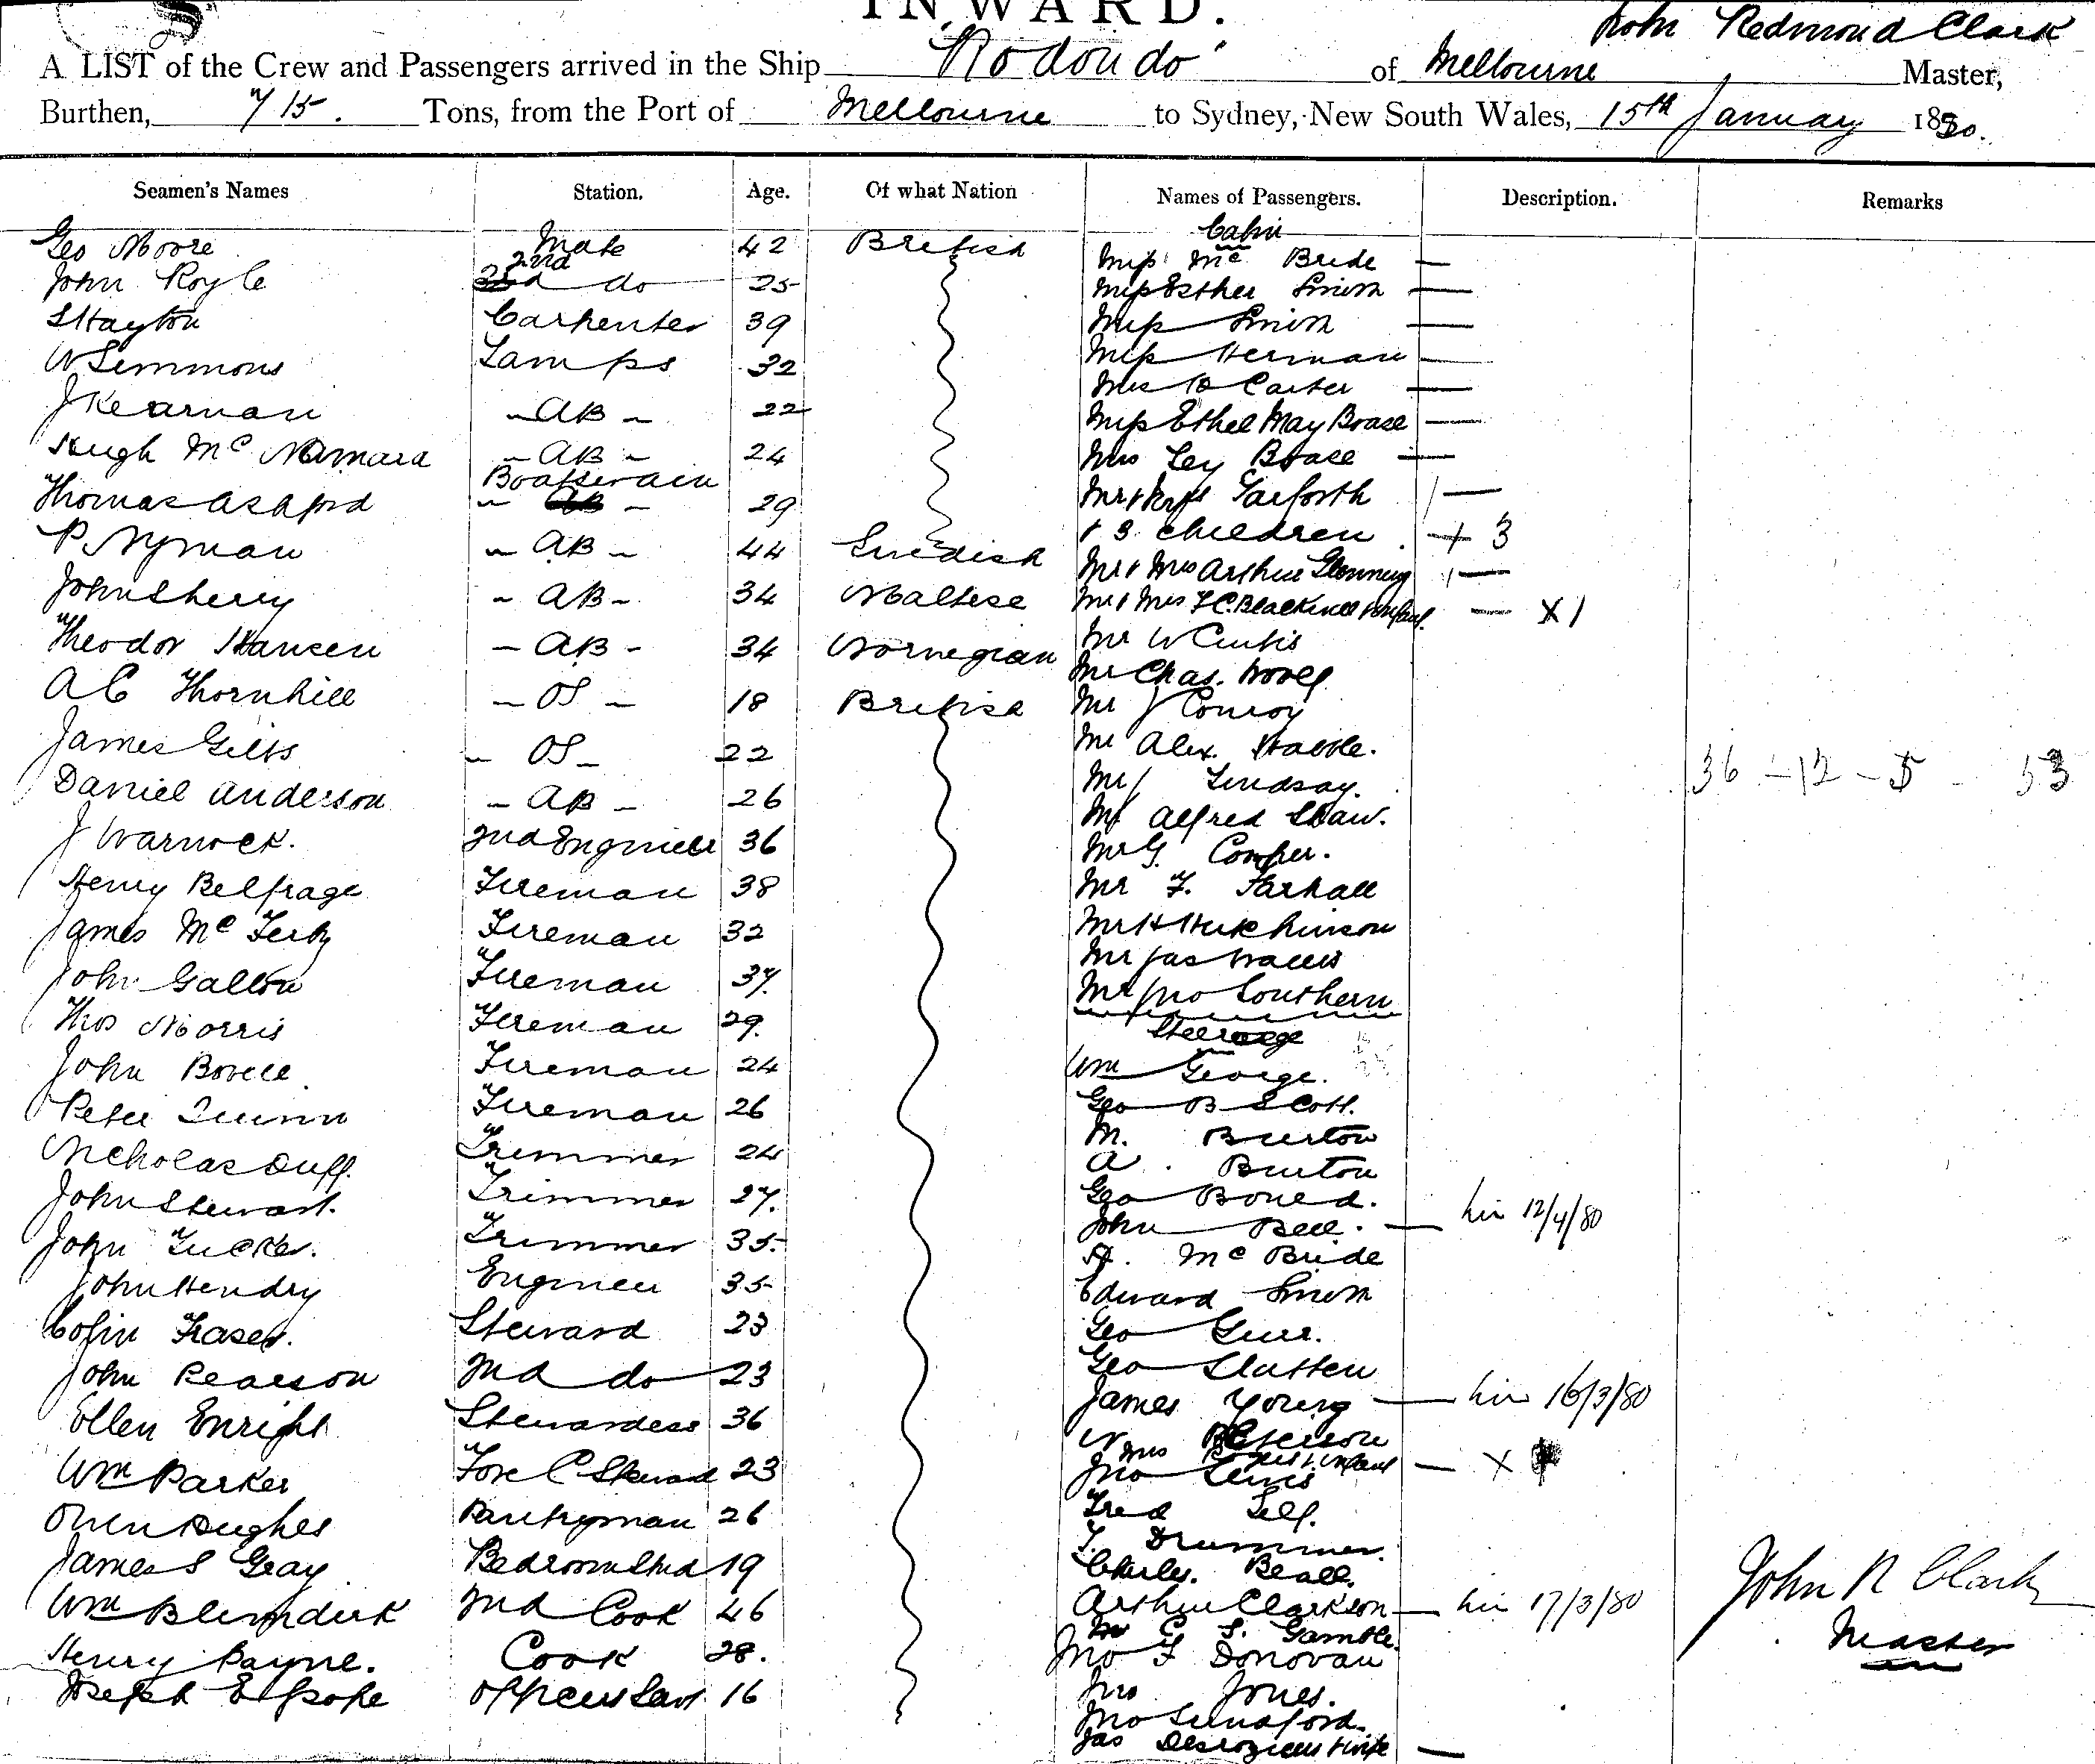 INWARD.
John Redmond Clark
A LIST of the Crew and Passengers arrived in the Ship "Rodondo" of Melbourne Master,
Burthen, 715. Tons, from the Port of Melbourne to Sydney, New South Wales, 15th January 1880.
Seamen's Names Station. Age. Of what Nation Names of Passengers. Description. Remarks
Geo Moore Mate 42 British
John Royle 2nd do 25
S Hayton Carpenter 39
W Simmons Lamps 32
J Kearnan AB 22
Hugh McNamara AB 24
Thomas Ashford Boatswain 29
P. Nyman AB 44 Swedish
John Sherry AB 34 Maltese
Theodor Hansen AB 34 Norwegian
A C Thornhill OS 18 British
James Gibbs OS 22
Daniel Anderson AB 26
J Warnock. 2nd Engineer 36
Henry Belfrage Fireman 38
James Mc Fireman 32
John Galton Fireman 37.
Thos Morris Fireman 29.
John Bovell Fireman 24
Peter Quinn Fireman 26
Nicholas Duff. Trimmer 24
John Stewart. Trimmer 27.
John Tucker. Trimmer 35.
John Hendry Engineer 35
Colin Fraser. Steward 23
John Pearson 2nd do 23
Ellen Enright Stewardess 36
Wm Parker Fore C Steward 23
Owen Hughes Pantryman 26
James S Gray Bedroom Stwd 19
Wm 2nd Cook 46
Henry Payne. Cook 28.
Joseph Officers Servt 16
Cabin
Miss McBride —
Miss Esther Smith —
Miss Smith —
Miss Herman —
Mrs Carter —
Miss Ethel May Boase —
Mrs Ley Boase —
Mr & Mrs Garforth —
& 3 children + 3
Mr & Mrs Arthur —
Mr & Mrs F C & infant. — X 1
Mr W Curtis
Mr Chas.
Mr J Conroy
Mr Alex.
Mr J Lindsay.
Mr Alfred Shaw.
Mr G. Cowper.
Mr F. Farhall
Mr H Hutchinson
Mr Jas Wallis
Mr Jno Southern
Steerage
Wm George.
Geo B Scott.
M. Burton
A. Burton
Geo Bound.
John Bell. — 12/4/80
McBride
Edward Smith
Geo Gurr.
Geo Slatten
James Young — 16/3/80
W Peterson
Mrs & infant — X
Jno Lewis
Fred Self.
T. Drummer.
Charles Beall.
Arthur Clarkson — 17/3/80
C S. Gamble.
Jno F Donovan
Jno Jones.
Jno
Jas & wife —
36 - 12 - 5 - 53
John R Clark
Master